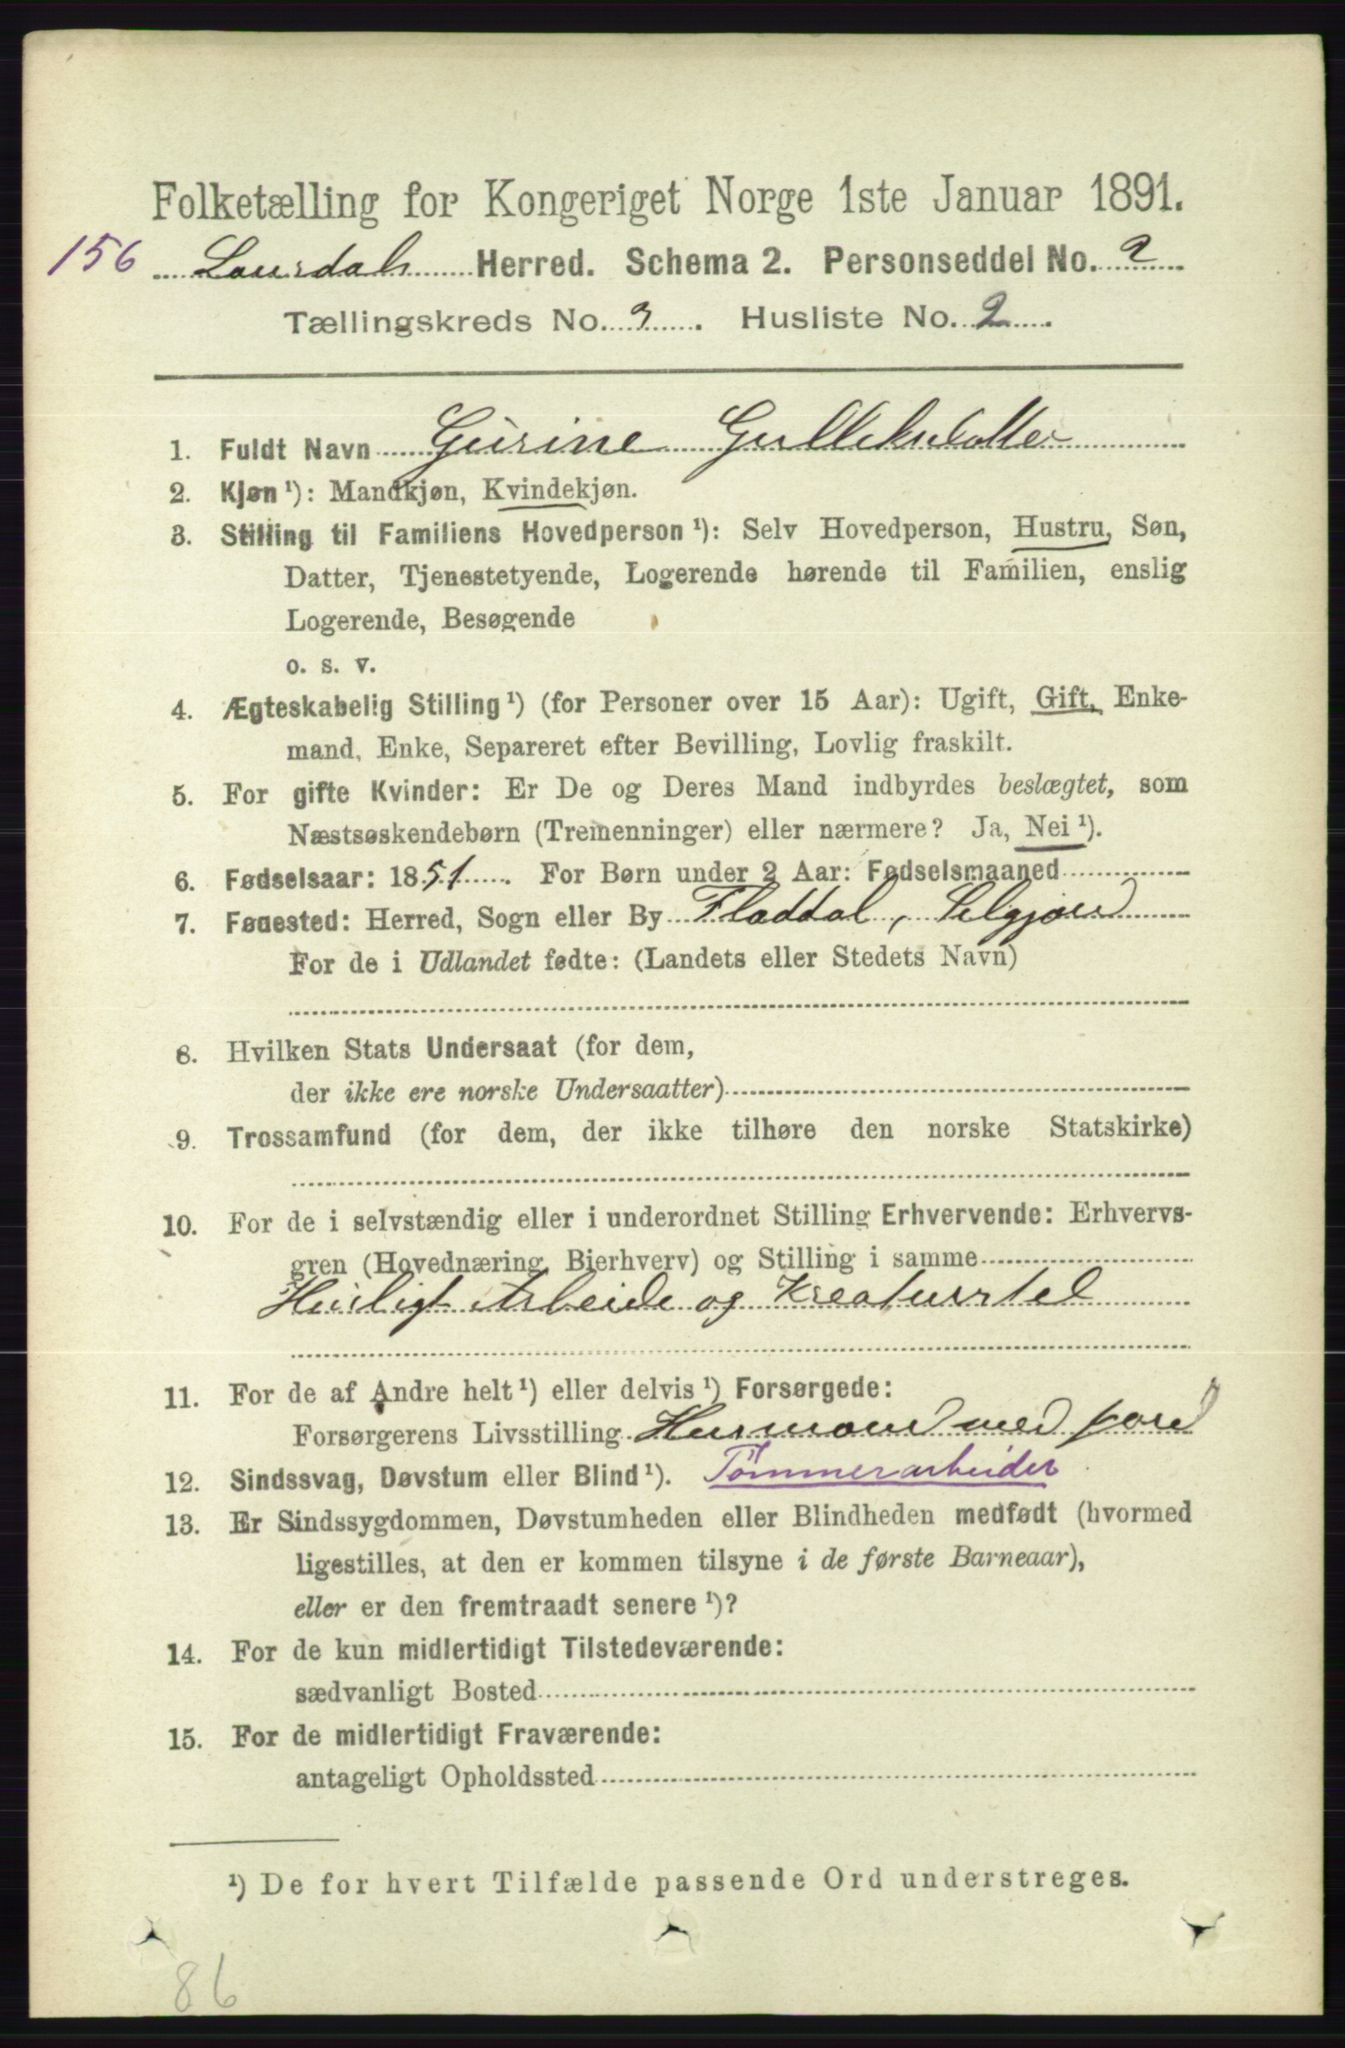 Folketælling for Kongeriget Norge 1ste Januar 1891.
156 Laurdal Herred. Schema 2. Personseddel No. 2
Tællingskreds No. 3. Husliste No. 2.
1. Fuldt Navn Gurine Gulleksdatter
2. Kjøn ¹): Mandkjøn, Kvindekjøn.
3. Stilling til Familiens Hovedperson ¹): Selv Hovedperson, Hustru, Søn,
Datter, Tjenestetyende, Logerende hørende til Familien, enslig
Logerende, Besøgende
o. s. v.
4. Ægteskabelig Stilling ¹) (for Personer over 15 Aar): Ugift, Gift, Enke-
mand, Enke, Separeret efter Bevilling, Lovlig fraskilt.
5. For gifte Kvinder: Er De og Deres Mand indbyrdes beslægtet, som
Næstsøskendebørn (Tremenninger) eller nærmere? Ja, Nei ¹).
6. Fødselsaar: 1851. For Børn under 2 Aar: Fødselsmaaned
7. Fødested: Herred, Sogn eller By Fladdal, Selgjord
For de i Udlandet fødte: (Landets eller Stedets Navn)
8. Hvilken Stats Undersaat (for dem,
der ikke ere norske Undersaatter)
9. Trossamfund (for dem, der ikke tilhøre den norske Statskirke)
10. For de i selvstændig eller i underordnet Stilling Erhvervende: Erhvervs-
gren (Hovednæring, Bierhverv) og Stilling i samme
Husligt Arbeide og Kreaturstel
11. For de af Andre helt ¹) eller delvis ¹) Forsørgede:
Forsørgerens Livsstilling Husmand med jord
12. Sindssvag, Døvstum eller Blind ¹). Tømmerarbeider
13. Er Sindssygdommen, Døvstumheden eller Blindheden medfødt (hvormed
ligestilles, at den er kommen tilsyne i de første Barneaar),
eller er den fremtraadt senere ¹)?
14. For de kun midlertidigt Tilstedeværende:
sædvanligt Bosted
15. For de midlertidigt Fraværende:
antageligt Opholdssted
¹) De for hvert Tilfælde passende Ord understreges.
86